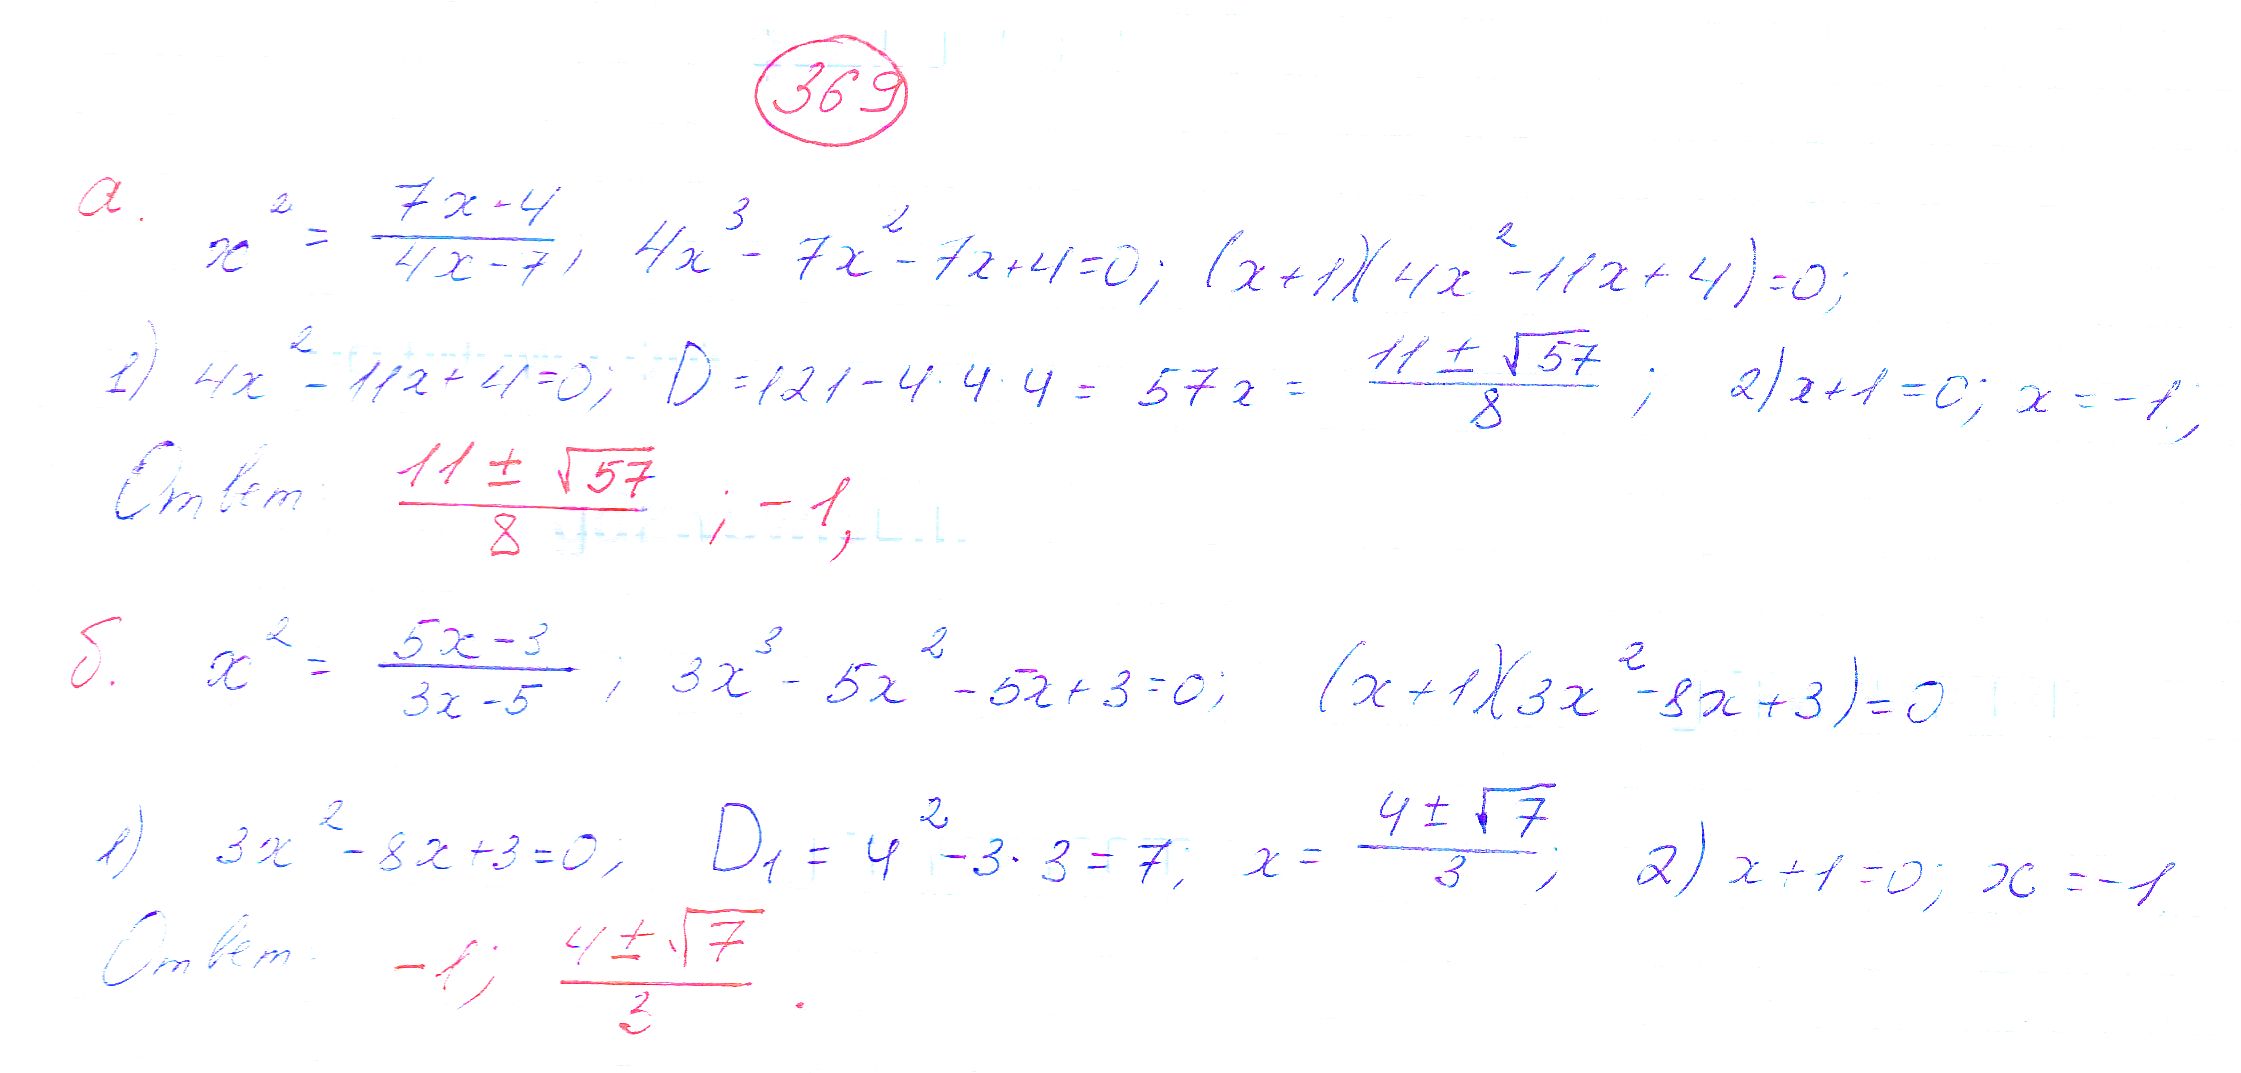 369
а. x² = (7x-4)/(4x-7); 4x³ - 7x² - 7x + 4 = 0; (x+1)(4x² - 11x + 4) = 0;
1) 4x² - 11x + 4 = 0; D = 121 - 4·4·4 = 57 x = (11 ± √57)/8; 2) x+1 = 0; x = -1;
Ответ: (11 ± √57)/8; -1,
б. x² = (5x-3)/(3x-5); 3x³ - 5x² - 5x + 3 = 0; (x+1)(3x² - 8x + 3) = 0
1) 3x² - 8x + 3 = 0; D₁ = 4² - 3·3 = 7; x = (4 ± √7)/3; 2) x+1 = 0; x = -1.
Ответ: -1; (4 ± √7)/3.